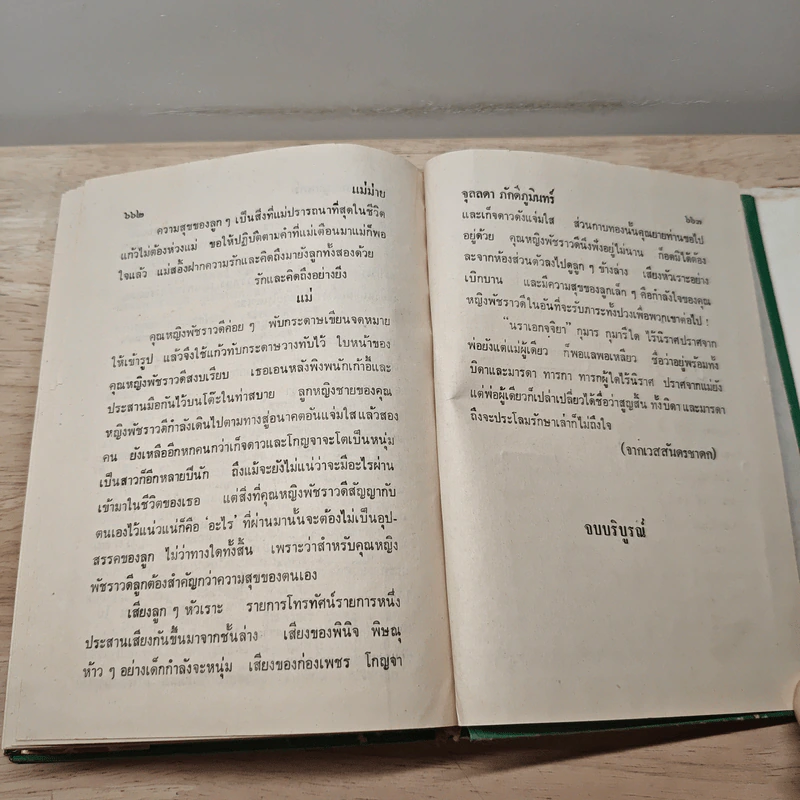 แม่ม่าย
๖๖๒
ความสุขของลูก ๆ เป็นสิ่งที่แม่ปรารถนาที่สุดในชีวิต
แก้วไม่ต้องห่วงแม่ ขอให้ปฏิบัติตามคำที่แม่เตือนมาแม่ก็พอ
ใจแล้ว แม่สอิ้งฝากความรักและคิดถึงมายังลูกทั้งสองด้วย
รักและคิดถึงอย่างยิ่ง
แม่
คุณหญิงพัชราวดีค่อย ๆ พับกระดาษเขียนจดหมาย
ให้เข้ารูป แล้วจึงใช้แก้วทับกระดาษวางทับไว้ ใบหน้าของ
คุณหญิงพัชราวดีสงบเรียบ เธอเอนหลังพิงพนักเก้าอี้และ
ประสานมือกันไว้บนโต๊ะในท่าสบาย ลูกหญิงชายของคุณ
หญิงพัชราวดีกำลังเดินไปตามทางสู่อนาคตอันแจ่มใสแล้วสอง
คน ยังเหลืออีกหกคนกว่าเก็จดาวและโกญจาจะโตเป็นหนุ่ม
เป็นสาวก็อีกหลายปีนัก ถึงแม้จะยังไม่แน่ว่าจะมีอะไรผ่าน
เข้ามาในชีวิตของเธอ แต่สิ่งที่คุณหญิงพัชราวดีสัญญากับ
ตนเองไว้แน่วแน่ก็คือ 'อะไร' ที่ผ่านมานั้นจะต้องไม่เป็นอุป-
สรรคของลูก ไม่ว่าทางใดทั้งสิ้น เพราะว่าสำหรับคุณหญิง
พัชราวดีลูกต้องสำคัญกว่าความสุขของตนเอง
เสียงลูก ๆ หัวเราะ รายการโทรทัศน์รายการหนึ่ง
ประสานเสียงกันขึ้นมาจากชั้นล่าง เสียงของพินิจ พิษณุ
ห้าว ๆ อย่างเด็กกำลังจะหนุ่ม เสียงของก่องเพชร โกญจา
จุลลดา ภักดิภูมินทร์
๖๖๓
และเก็จดาวดังแจ่มใส ส่วนกาบทองนั้นคุณยายท่านขอไป
อยู่ด้วย คุณหญิงพัชราวดีนั่งฟังอยู่ไม่นาน ก็อดมิได้ต้อง
ละจากห้องส่วนตัวลงไปดูลูก ๆ ข้างล่าง เสียงหัวเราะอย่าง
เบิกบาน และมีความสุขของลูกเล็ก ๆ คือกำลังใจของคุณ
หญิงพัชราวดีในอันที่จะรับภาระทั้งปวงเพื่อพวกเขาต่อไป !
"นราเอกจฺจิยา" กุมาร กุมารีใด ไร้นิราศปราศจาก
พ่อยังแต่แม่ผู้เดียว ก็พอแลพอเหลียว ชื่อว่าอยู่พร้อมทั้ง
บิดาและมารดา ทารกา ทารกผู้ใดไร้นิราศ ปราศจากแม่ยัง
แต่พ่อผู้เดียวก็เปล่าเปลี่ยวได้ชื่อว่าสูญสิ้น ทั้งบิดา และมารดา
ถึงจะประโลมรักษาเล่าก็ไม่ถึงใจ
(จากเวสสันดรชาดก)
จบบริบูรณ์